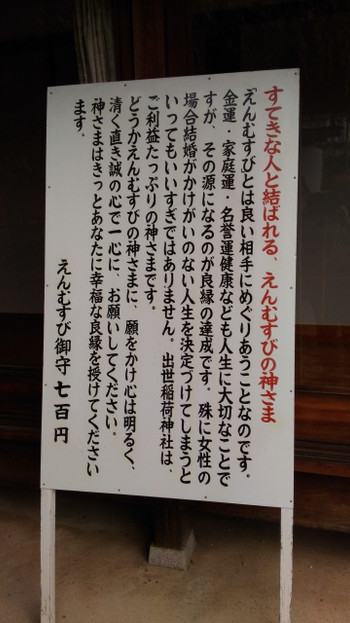 すてきな人と結ばれる、えんむすびの神さま
「えんむすびとは良い相手にめぐりあうことなのです。
金運・家庭運・名誉運健康なども人生に大切なことで
すが、その源になるのが良縁の達成です。殊に女性の
場合結婚がかけがいのない人生を決定づけてしまうと
いってもいいすぎではありません。出世稲荷神社は、
ご利益たっぷりの神さまです。
どうかえんむすびの神さまに、願をかけ心は明るく、
清く直き誠の心で一心に、お願いしてください。
神さまはきっとあなたに幸福な良縁を授けてください
ます。
えんむすび御守 七百円